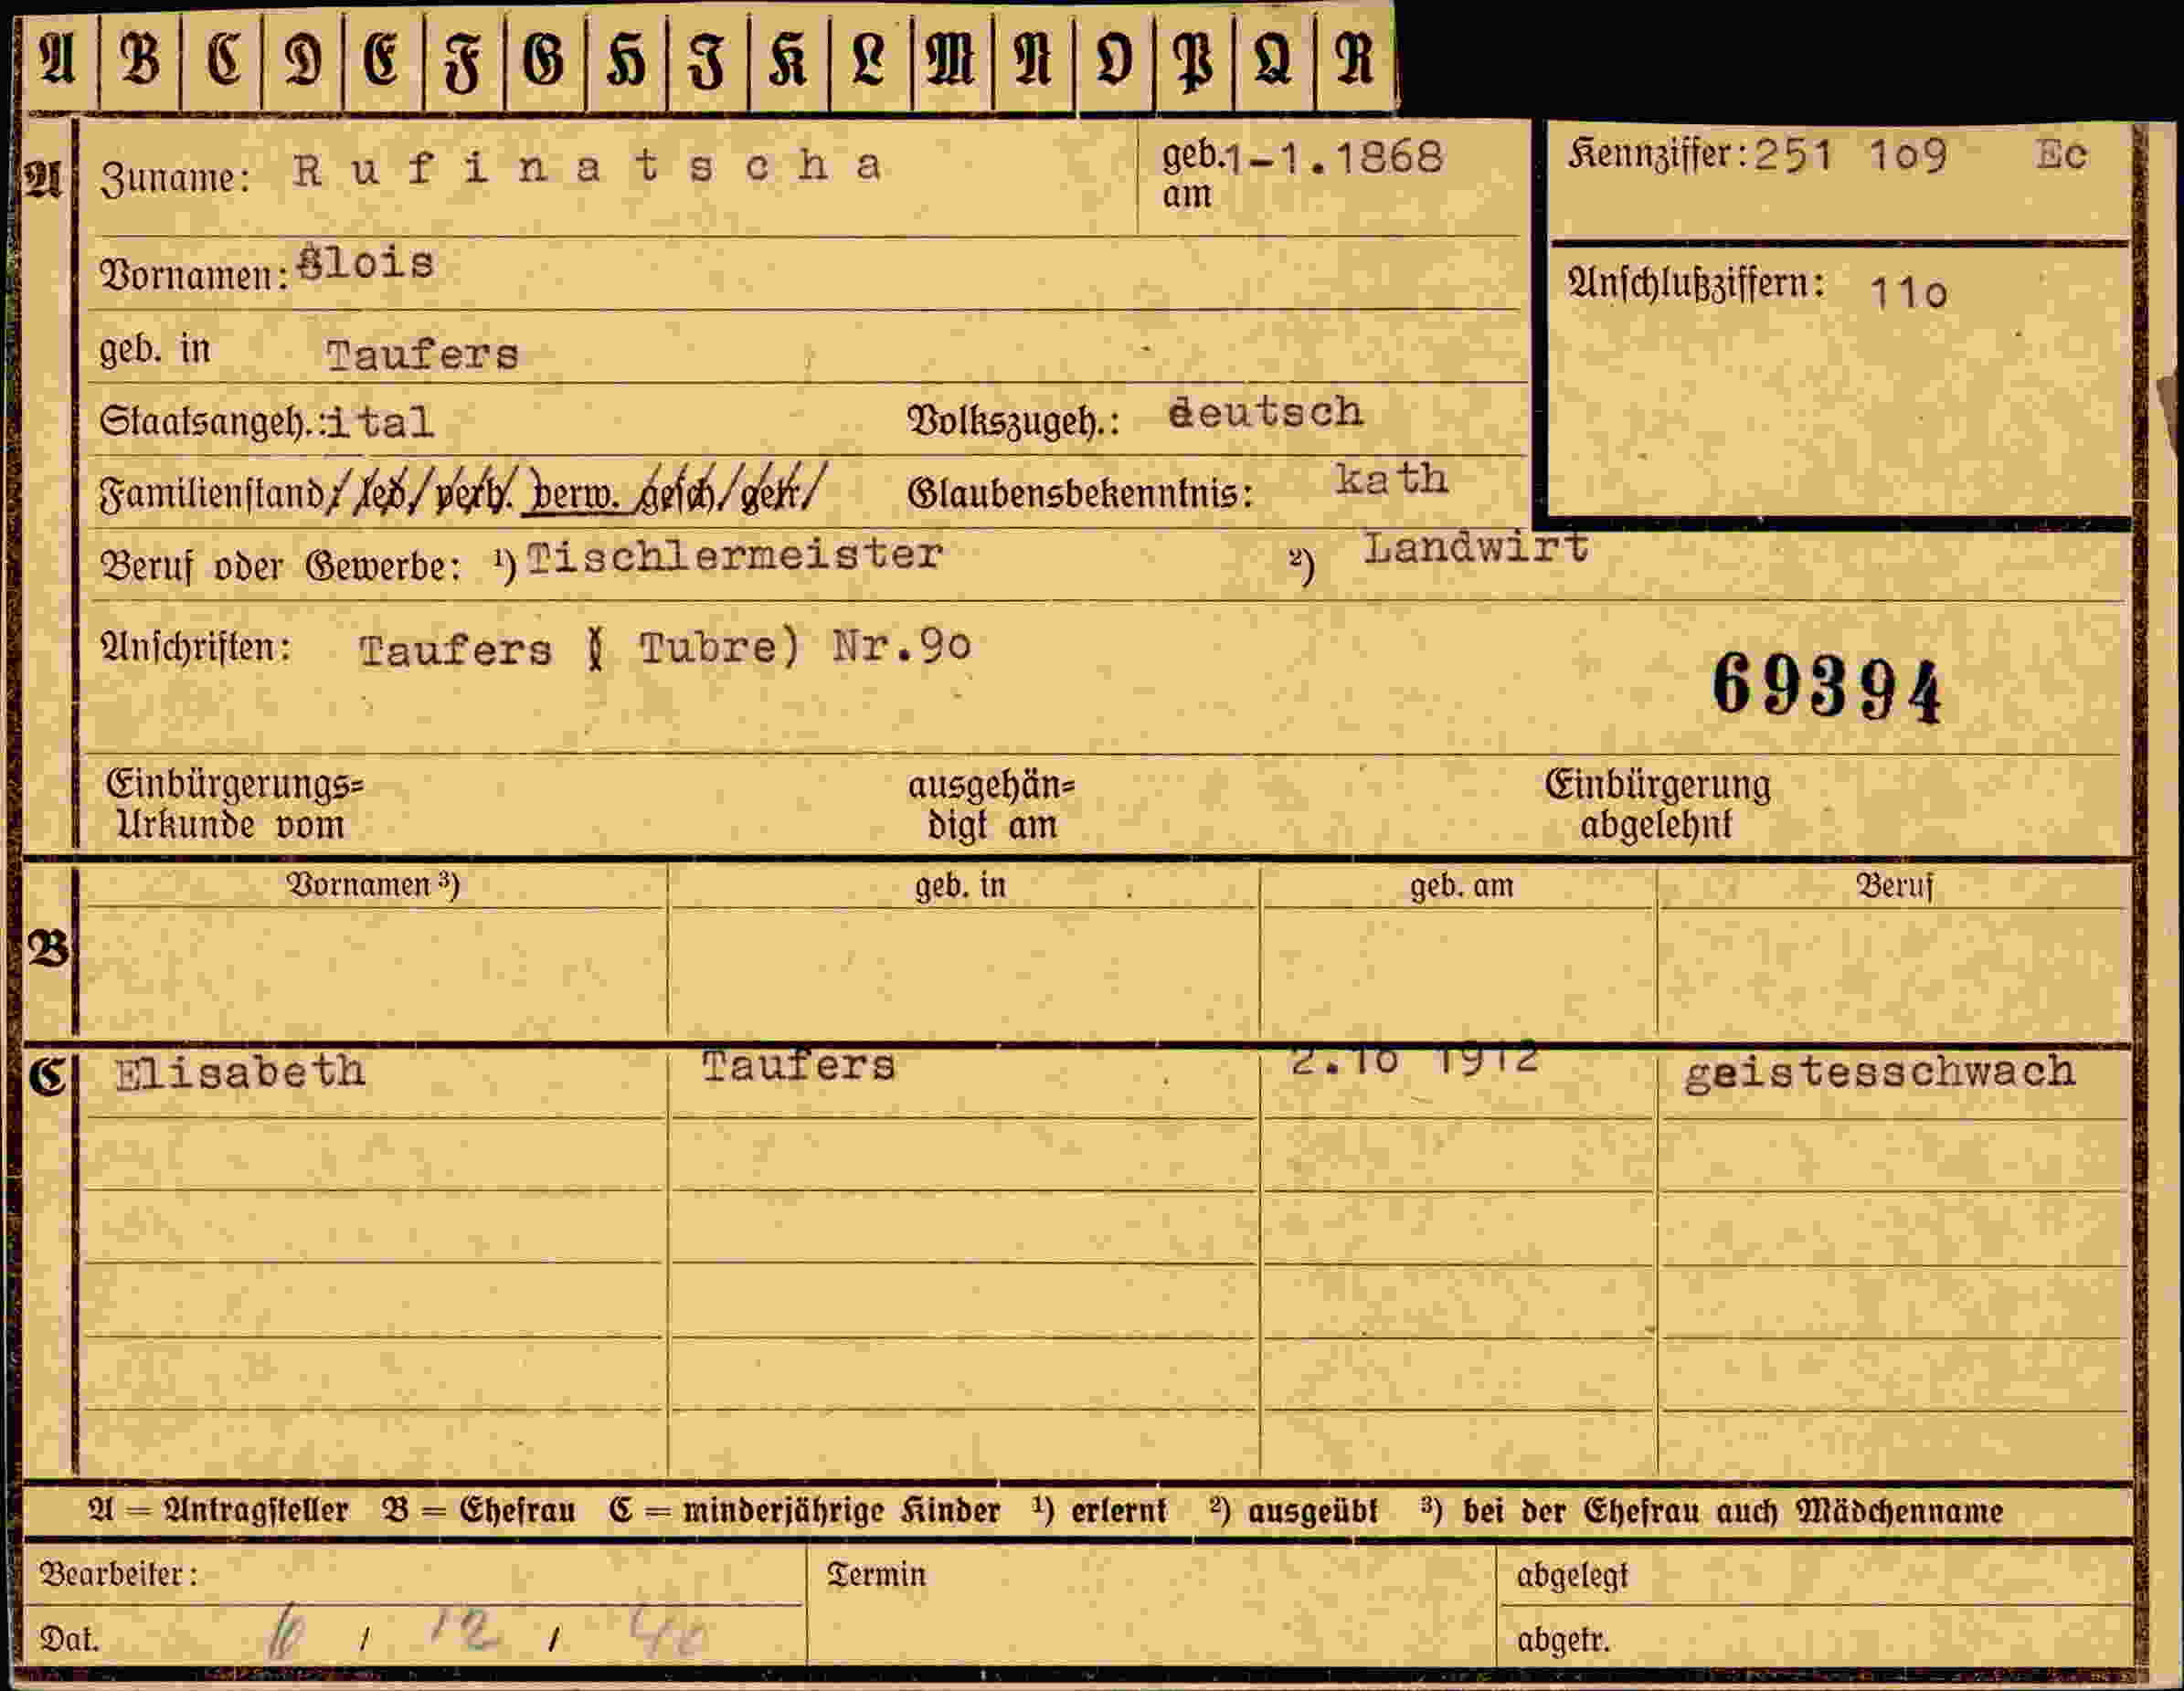 A B C D E F G H I K L M N O P Q R
A Zuname: Rufinatscha geb. am 1-1.1868 Kennziffer: 251 1o9 Ec
Vornamen: Alois Anschlußziffern: 11o
geb. in Taufers
Staatsangeh.: ital Volkszugeh.: deutsch
Familienstand: led. verh. verw. gesch. getr. Glaubensbekenntnis: kath
Beruf oder Gewerbe: ¹) Tischlermeister ²) Landwirt
Anschriften: Taufers ( Tubre) Nr.9o
69394
Einbürgerungs= ausgehän= Einbürgerung
Urkunde vom digt am abgelehnt
Vornamen ³) geb. in geb. am Beruf
B
C Elisabeth Taufers 2.1o 1912 geistesschwach
A = Antragsteller B = Ehefrau C = minderjährige Kinder ¹) erlernt ²) ausgeübt ³) bei der Ehefrau auch Mädchenname
Bearbeiter: Termin abgelegt
Dat. 10 / 12 / 40 abgetr.